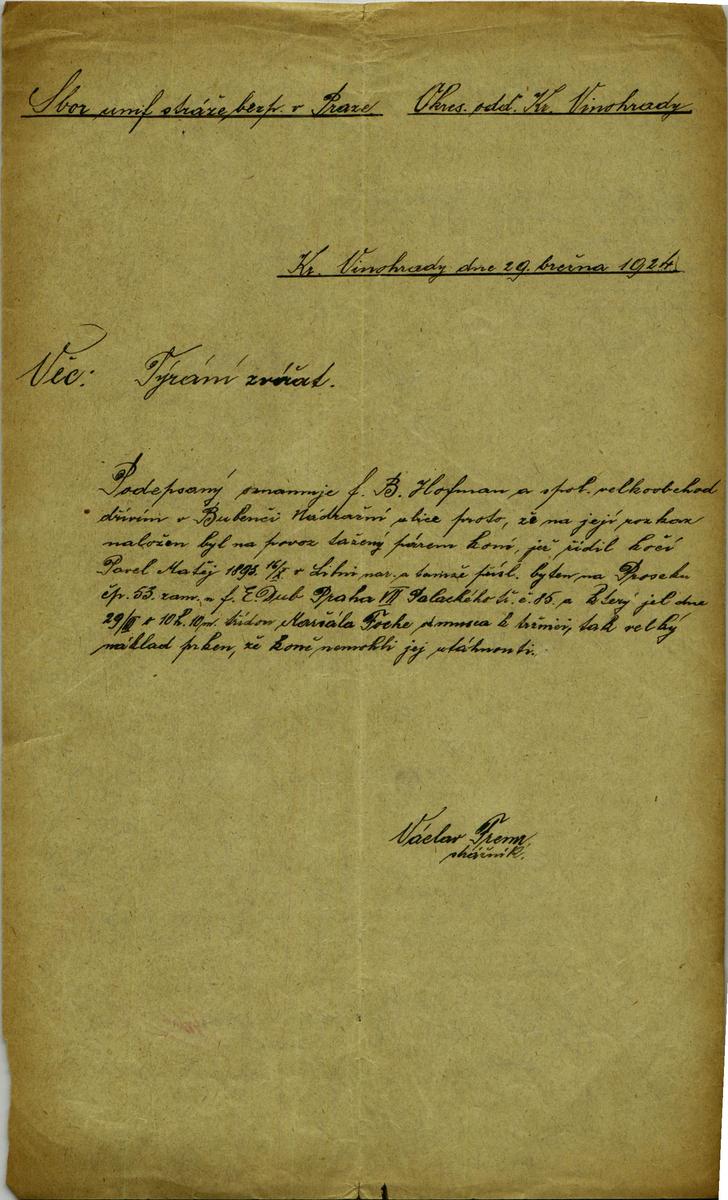 Sbor unif stráže bezp. v Praze. Okres. odd. Kr. Vinohrady
Kr. Vinohrady dne 29. března 1924.
Věc: Týrání zvířat.
Podepsaný oznamuje f. B. Hofman a spol. velkoobchod
dřívím v Bubenči Nádražní ulice proto, že na její rozkaz
naložen byl na povoz tažený párem koní, jež řídil kočí
Pavel Matěj 1895 16/X v Libni nar. a tamže přísl. bytem na Proseku
čp. 53. zam. u f. E. Dub Praha VII Palackého tř. č. 85. a který jel dne
29/III v 10 h. 10 m. třídou Maršála Foche k tržnici, tak velký
náklad prken, že koně nemohli jej utáhnouti.
Václav
strážník.